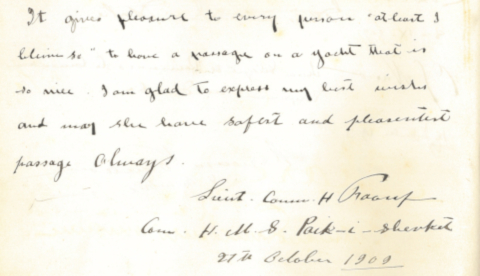 It gives pleasure to every person "at least I
believe so" to have a passage on a yacht that is
so nice. I am glad to express my best wishes
and may she have safest and pleasentest
passage always.
Lieut. Comm. H Raouf
Com. H. M. S. Paik-i-Shevket
27th October 1909